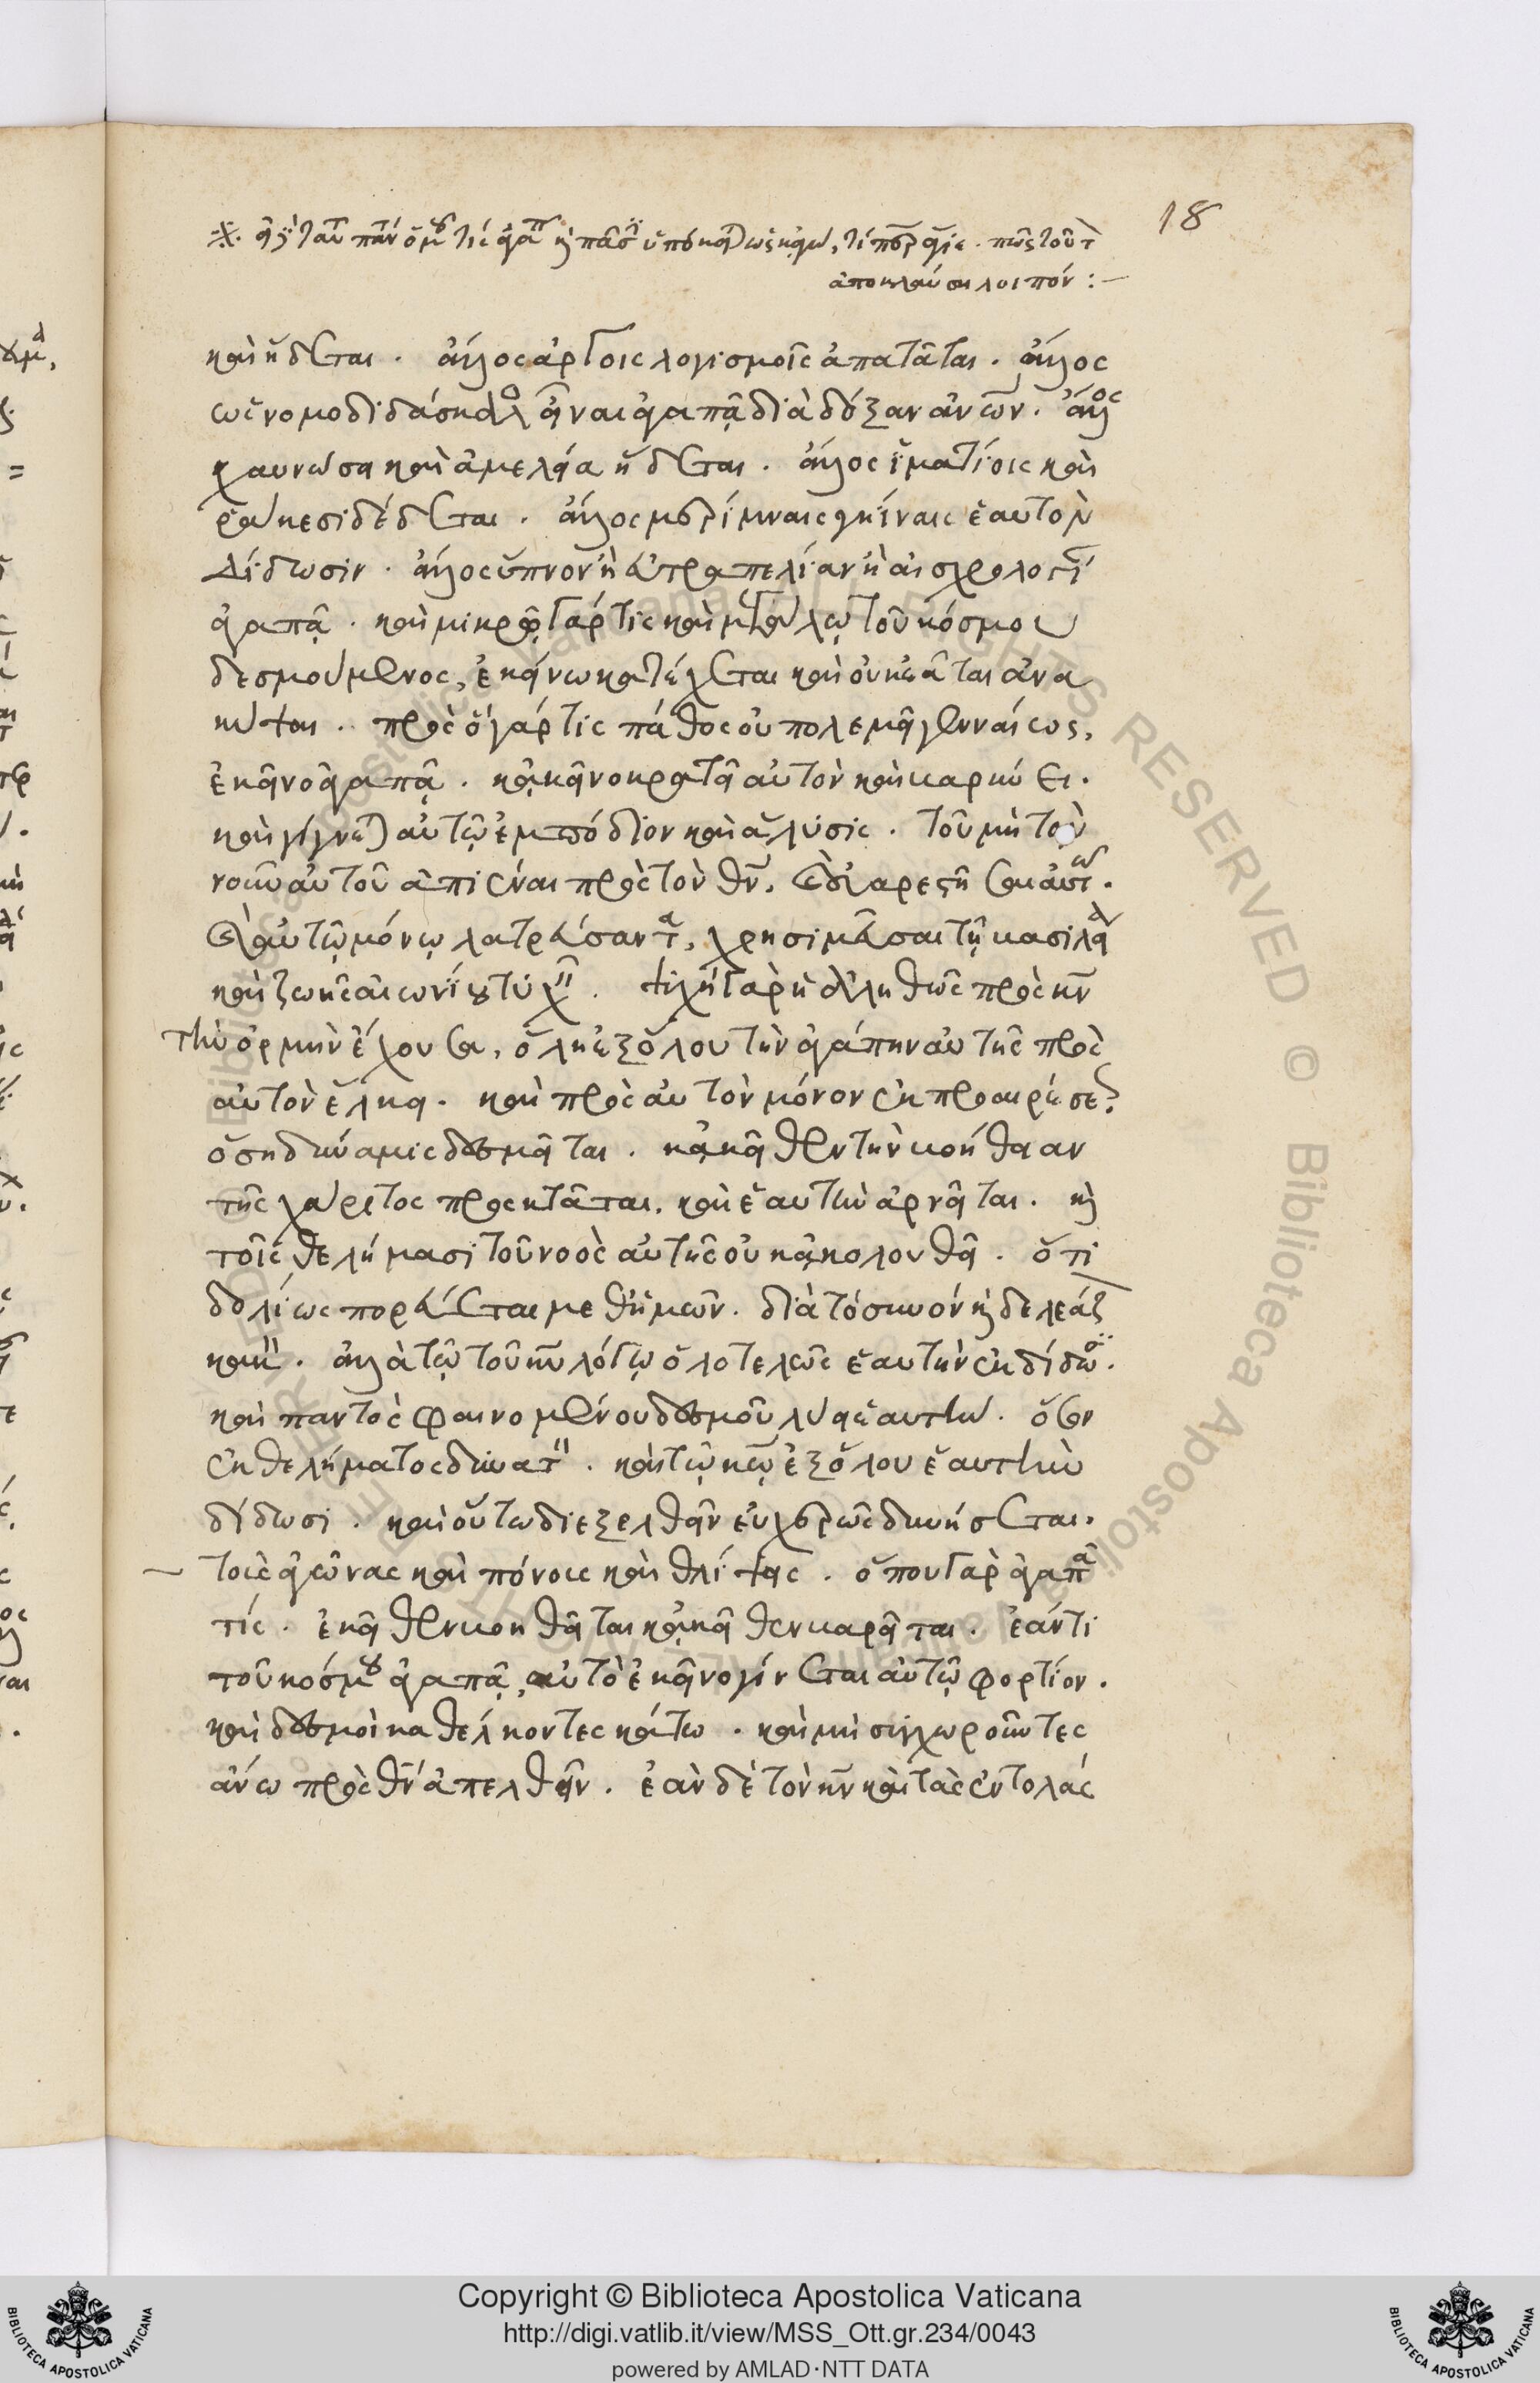 18
ἀποκλαύση λοιπόν :—
καὶ ἥδεται . ἄλλος ἀργοῖς λογισμοῖς ἀπατᾶται . ἄλλος
ὡς νομοδιδάσκαλο εἶναι ἀγαπᾷ διὰ δόξαν ἀνων . ἄλλος
χαυνώσει καὶ ἀμελεία ἥδεται . ἄλλος ἱματίοις καὶ
ῥάκεσι δέδεται . ἄλλος μερίμναις γηΐναις ἑαυτὸν
δίδωσιν . ἄλλος ὕπνον ἢ εὐτραπελίαν ἢ αἰσχρολογί
ἀγαπᾷ . καὶ μικρῷ γάρ τις καὶ μεγάλῳ τοῦ κόσμου
δεσμούμενος, ἐκείνω κατέχεται καὶ οὐκ ἐᾶται ἀνα
κύψαι . πρὸς ὃ γάρ τις πάθος οὐ πολεμεῖ γενναίως,
ἐκεῖνο ἀγαπᾷ . κἀκεῖνο κρατεῖ αὐτὸν καὶ βαρύει .
καὶ γίγνεται αὐτῷ ἐμπόδιον καὶ ἅλυσις . τοῦ μὴ τὸν
νοῦν αὐτοῦ ἀπιέναι πρὸς τὸν θν,
αὐτῷ μόνῳ λατρεύσαντα, χρησιμεῦσαι τῇ βασιλεία
καὶ ζωῆς αἰωνίου τύχη . ψιχὴ γὰρ ἡ ἀληθῶς πρὸς κν
τὴν ὁρμὴν ἔχουσα, ὅλη ἐξ ὅλου τὴν ἀγάπην αὐτῆς πρὸς
αὐτὸν ἕλκει . καὶ πρὸς αὐτὸν μόνον ἐκ προαιρέσε
ὅση δύναμις δεσμεῖται . κἀκεῖθεν τὴν βοήθειαν
τῆς χάριτος προσκτᾶται, καὶ ἑαυτὴν ἀρνεῖται . κὶ
τοῖς θελήμασι τοῦ νοὸς αὐτῆς οὐκ ἀκολουθεῖ . ὅτι
δολίως πορεύεται μεθ ἡμῶν . διὰ τὸ συνὸν κὶ δελεάζ
κακ . ἀλλὰ τῷ τοῦ κυ λόγῳ ὁλοτελῶς ἑαυτὴν ἐκδίδω .
καὶ παντὸς φαινομένου δεσμοῦ λύει ἑαυτὴν . ὅσον
ἐκ θελήματος δυνατ . καὶ τῷ κω ἐξ ὅλου ἑαυτὴν
δίδωσι . καὶ οὕτω διεξελθεῖν εὐχερῶς δυνήσεται .
τοὺς ἀγῶνας καὶ πόνοις καὶ θλίψεις . ὅπου γὰρ ἀγαπᾶ
τίς . ἐκεῖθεν βοηθεῖται κἀκεῖθεν βαρεῖται . ἐάν τι
τοῦ κόσμου ἀγαπᾷ, αὐτὸ ἐκεῖνο γίνεται αὐτῷ φορτίον .
καὶ δεσμοὶ καθέλκοντες κάτω . καὶ μὴ συγχωροῦντες
ἄνω πρὸς θν ἀπελθεῖν . ἐὰν δὲ τὸν κν καὶ τὰς ἐντολάς
Copyright © Biblioteca Apostolica Vaticana
http://digi.vatlib.it/view/MSS_Ott.gr.234/0043
powered by AMLAD·NTT DATA